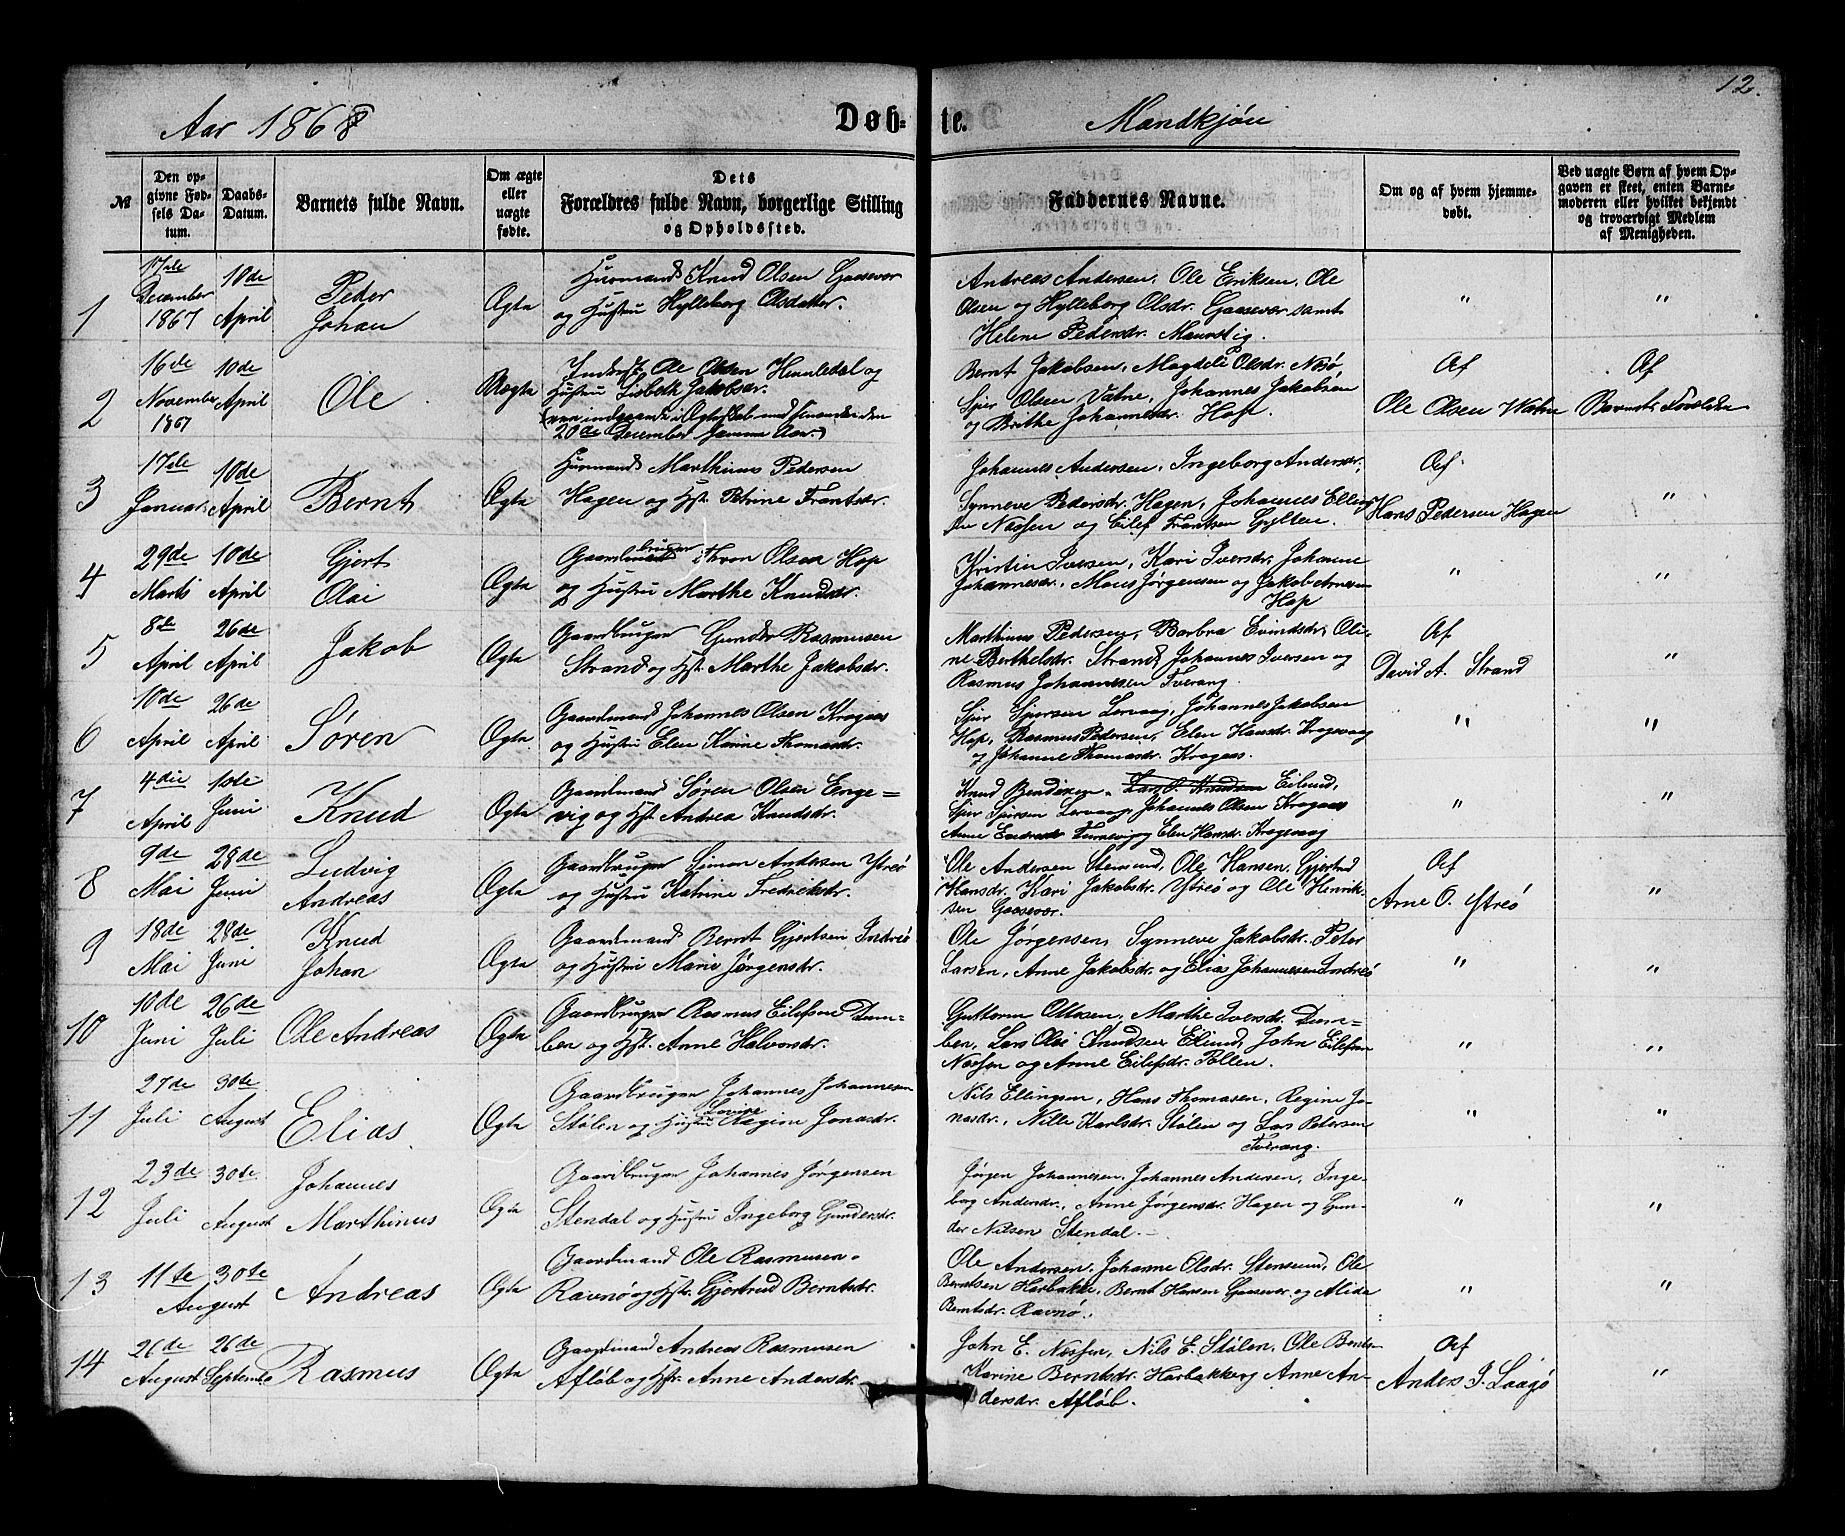 12.
Aar 1868
Døb-
te.
Mandkjøn
№
Den op-
givne Fød-
sels Da-
tum.
Daabs-
Datum.
Barnets fulde Navn.
Om ægte
eller
uægte
fødte.
Dets
Forældres fulde Navn, borgerlige Stilling
og Opholdssted.
Faddernes Navne.
Om og af hvem hjemme-
døbt.
Ved uægte Børn af hvem Op-
gaven er skeet, enten Barne-
moderen eller hvilket bekjendt
og troværdigt Medlem
af Menigheden.
1
17de
December
1867
10de
April
Peder
Johan
Ægte
Huusmand Knud Olsen Gaasevær
og Hustru Hylleborg Olsdatter.
Andreas Andersen, Ole Eriksen, Ole
Olsen og Hylleborg Olsdr. Gaasevær samt
Helene Pedersdr. Maurstig.
"
"
2
16de
November
1867
10de
April
Ole
Uægte
Inderst Ole Olsen Hennledal og
Hustru Lisbeth Jakobsdr.
20de December samme Aar.)
Bernt Jakobsen, Magdeli Olsdr. Nesø,
Sjur Olsen Vatne, Johannes Jakobsen
og Brithe Johannesdr. Hop.
Af
Ole Olsen Watne
Af
Barnets Forældre
3
17de
Januar
10de
April
Bernt
Ægte
Huusmand Marthinus Pedersen
Hagen og Hst. Petrine Frantsdr.
Johannes Andersen, Ingeborg Andersdr,
Synneve Pedersdr. Hagen, Johannes Elling-
sen Nessen og Eilef Frantsen Gylten.
Af
Hans Pedersen Hagen
"
4
29de
Marts
10de
April
Gjert
Olai
Ægte
bruger
Gaardmand Ithvon Olsen Hop
og Hustru Marthe Knudsdr.
Kristin Iversen, Kari Iversdr. Johanne
Johannesdr., Mons Jørgensen og Jakob Arnesen
Hop
"
"
5
8de
April
26de
April
Jakob
Ægte
Gaardbruger Gunder Rasmusen
Strand og Hst. Marthe Jakobsdr.
Marthinus Pedersen, Barbra Evindsdr, Oli-
ne Berthelsdr. Strand, Johannes Iversen og
Rasmus Johannesen Tverang.
Af
David A. Strand
"
6
10de
April
26de
April
Søren
Ægte
Gaardmand Johannes Olsen Krogaas
og Hustru Elen Karine Thomasdr.
Sjur Sjursen Lervaag, Johannes Jakobsen
Hop, Rasmus Pedersen, Elen Hansdr. Krogevaag
og Johanne Thomasdr. Krogaas.
"
"
7
4die
April
1ste
Juni
Knud
Ægte
Gaardmand Søren Olsen Enge-
vig og Hst. Andrea Knudsdr.
Knud Bendixen, Lars O. Knudsen Eilund,
Sjur Sjursen Lervaag, Johannes Olsen Krogaas
Elen Hansdr. Krogevaag
"
"
8
9de
Mai
28de
Juni
Ludvig
Andreas
Ægte
Gaardbruger Simon Andersen Ytreø
og Hustru Katrine Fredriksdr.
Ole Andersen Stensund, Ole Hansen, Gjertrud
Hansdr. Kari Jakobsdr. Ytreø og Ole Henrik-
sen Gaasevær.
Af
Arne O. Ytreø
"
9
18de
Mai
28de
Juni
Knud
Johan
Ægte
Gaardmand Bernt Gjertsen Indreø
og Hustru Marie Jørgensdr.
Ole Jørgensen, Synneve Jakobsdr. Peter
Larsen, Anne Jakobsdr. og Elias Johannesen Indreø
"
"
10
10de
Juni
26de
Juli
Ole Andreas
Ægte
Gaardbruger Rasmus Eilefsen Dum-
ben og Hst. Anne Halvorsdr.
Guttorm Ottesen, Marthe Iversdr. Dum-
ben, Lars Olai Knudsen Eilund, John Eilefsen
Nessen og Anne Eilefsdr. Pollen.
"
"
11
27de
Juli
30de
August
Elias
Ægte
Gaardbruger Johannes Johannesen
Lovise
Stølen og Hustru Regine Jonasdr.
Nils Ellingsen, Hans Thomasen, Regine Jo-
nasdr., Nille Karlsdr. Stølen og Lars Petersen
Tverang.
"
"
12
23de
Juli
30de
August
Johannes
Marthinus
Ægte
Gaardbruger Johannes Jørgensen
Stendal og Hustru Ingeborg Gundersdr.
Jørgen Johannesen, Johannes Andersen, Inge-
borg Andersdr., Anne Jørgensdr. Hagen og Gun-
der Nilsen Stendal.
"
"
13
11te
August
30te
Andreas
Ægte
Gaardmand Ole Rasmusen
Ravnø og Hst. Gjertrud Berntsdr.
Ole Andersen, Johanne Olsdr. Stensund, Ole
Berntsen Harbakke, Bernt Hansen Gaasevær og Alida
Berntsdr. Ravnø.
"
"
14
26de
August
26de
September
Rasmus
Ægte
Gaardmand Andreas Rasmusen
Afløb og Hst. Anne Andersdr.
John E. Nessen, Nils E. Stølen, Ole Bernts-
Karine Berntsdr. Harbakke og Anne An-
dersdr. Afløb.
Af
Anders J. Laagø
"